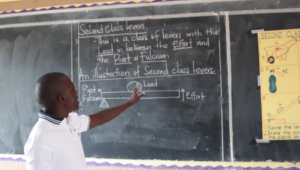 Second Class levers
- This is a class of levers with the
Load in between the Effort and
the Pivot or Fulcrum.
An illustration of Second class levers:
Pivot or
Fulcrum
Load
Effort
SECOND CLASS